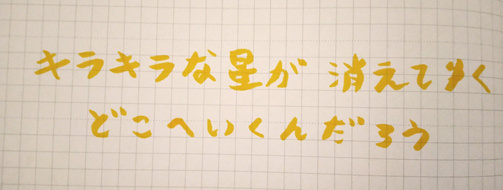 キラキラな星が 消えてゆく
どこへいくんだろう